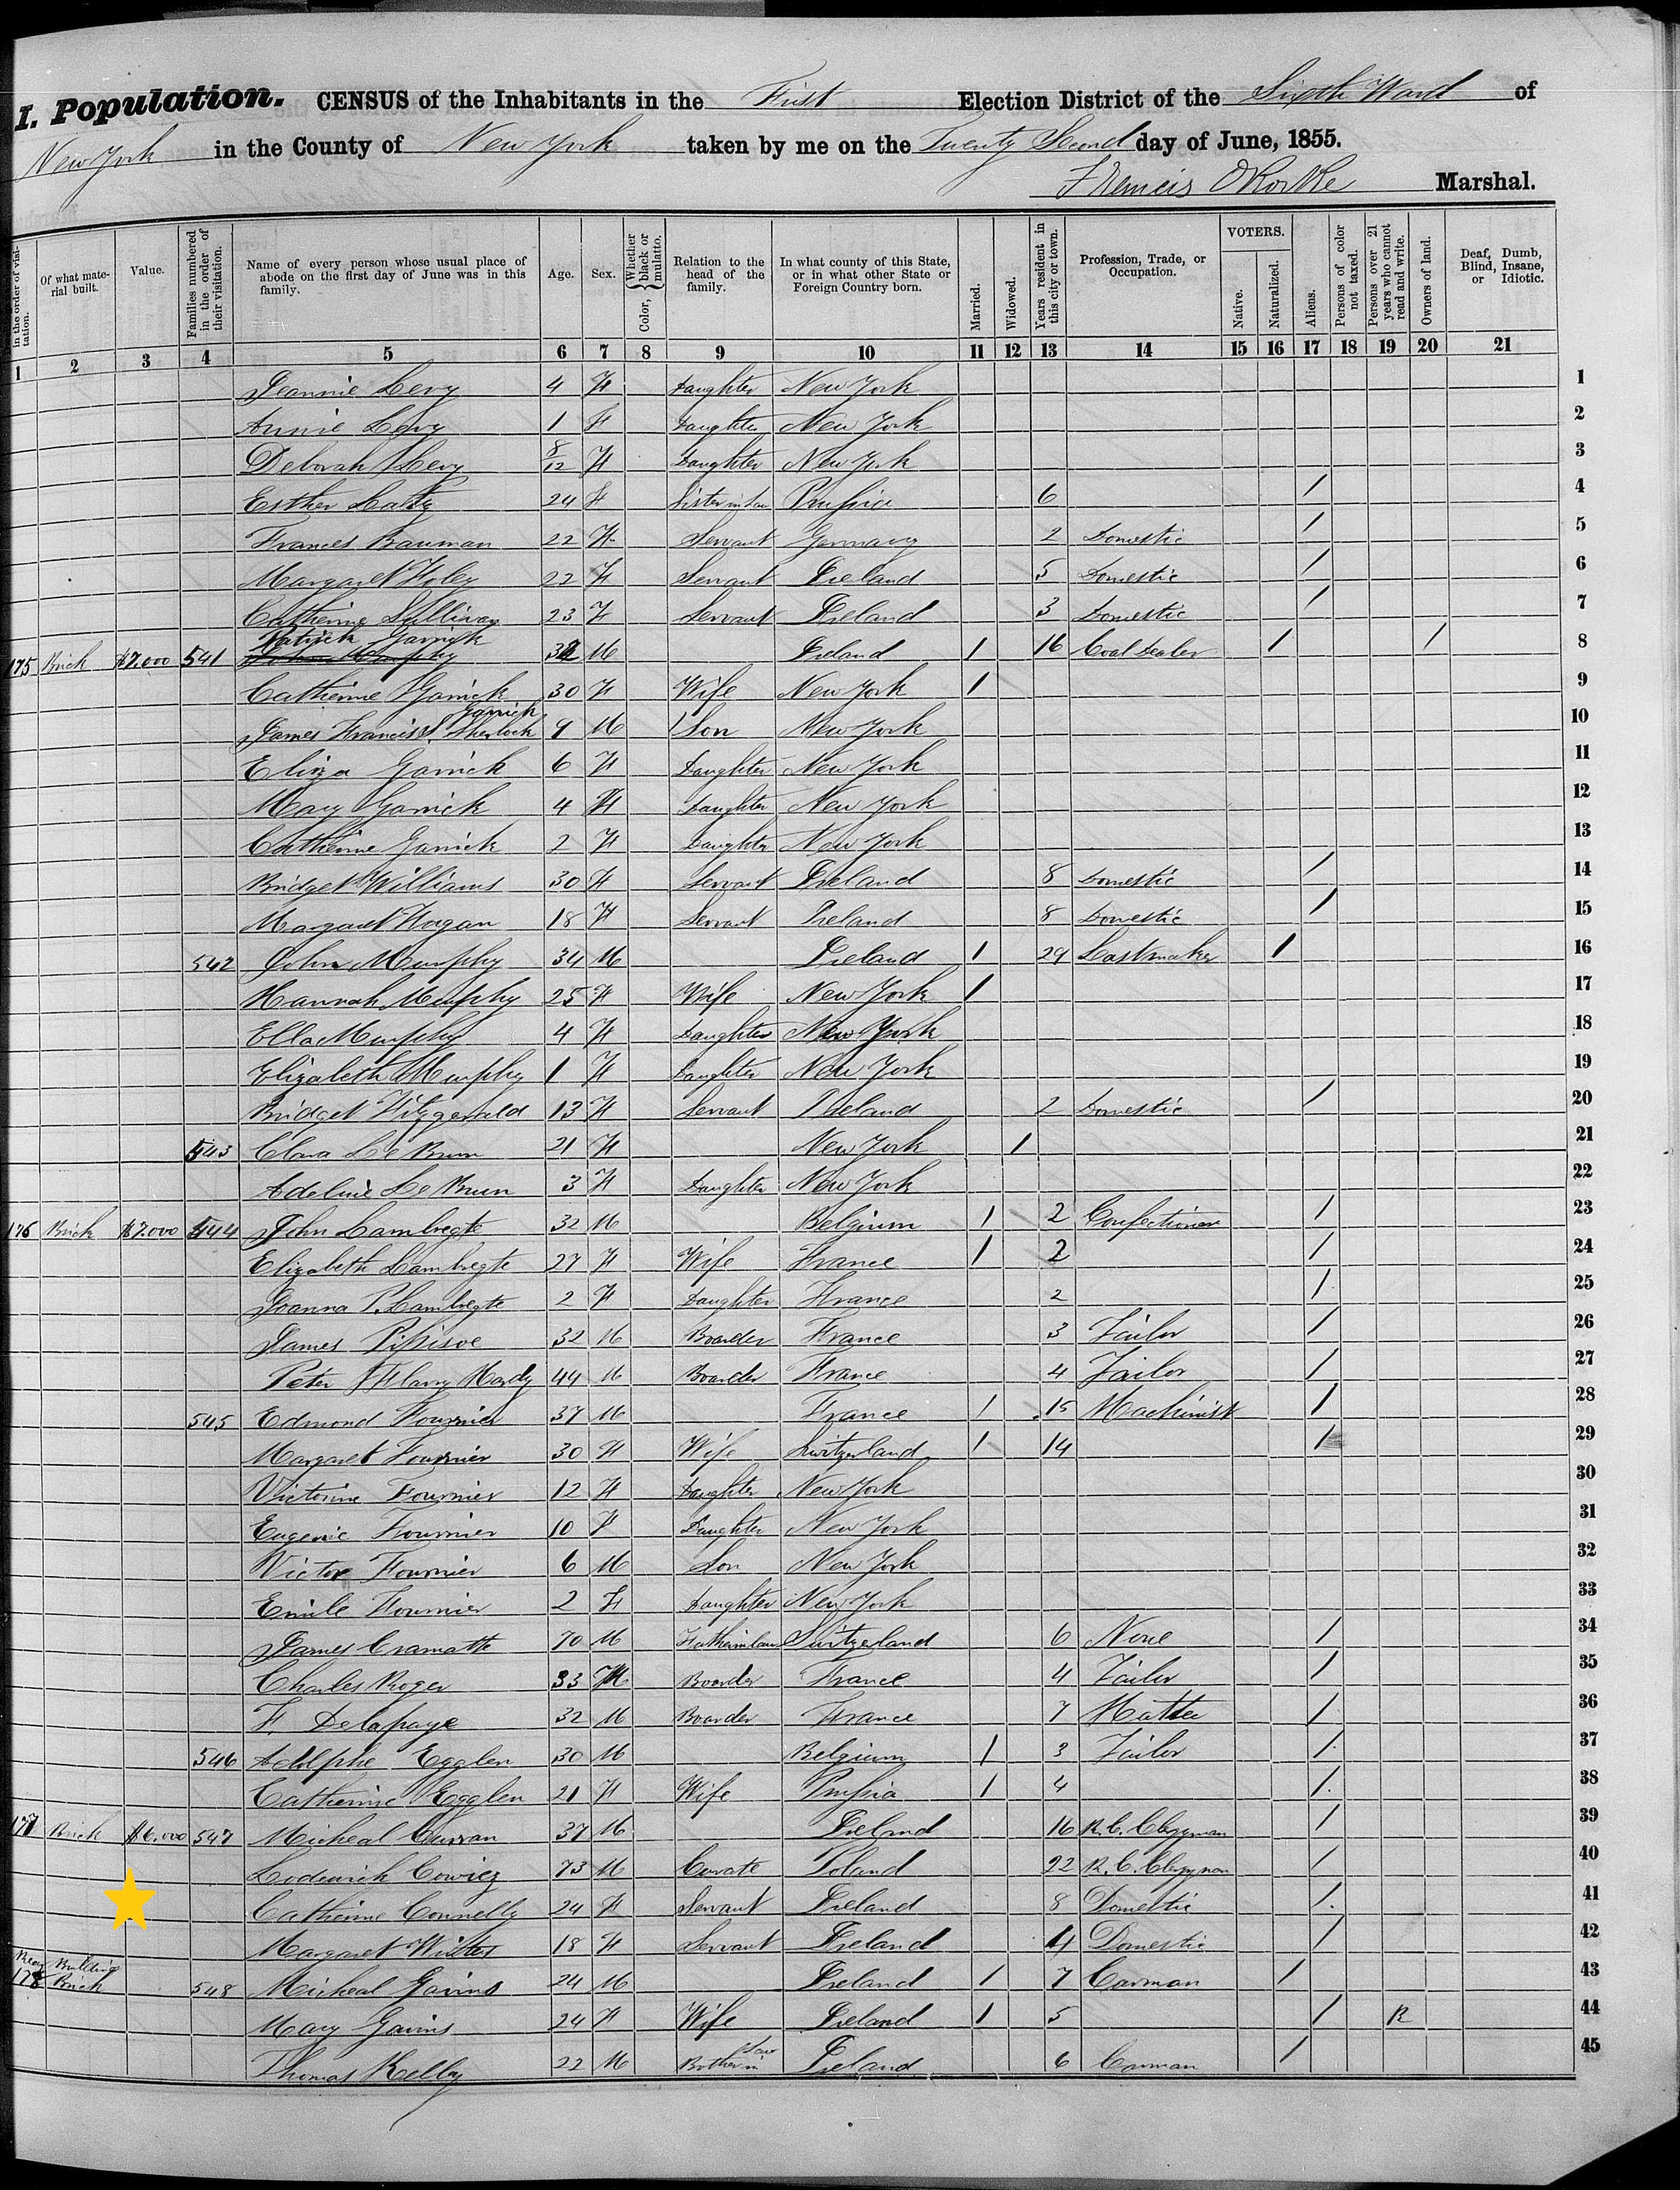 I. Population. CENSUS of the Inhabitants in the First Election District of the Sixth Ward of
New York in the County of New York taken by me on the Twenty Second day of June, 1855.
Francis O'Rorke Marshal.
in the order of visitation. Of what material built. Value. Families numbered in the order of their visitation. Name of every person whose usual place of abode on the first day of June was in this family. Age. Sex. Color, Whether black or mulatto. Relation to the head of the family. In what county of this State, or in what other State or Foreign Country born. Married. Widowed. Years resident in this city or town. Profession, Trade, or Occupation. VOTERS. Native. Naturalized. Aliens. Persons of color not taxed. Persons over 21 years who cannot read and write. Owners of land. Deaf, Dumb, Blind, Insane, or Idiotic.
1 2 3 4 5 6 7 8 9 10 11 12 13 14 15 16 17 18 19 20 21
Jeannie Levy 4 F Daughter New York 1
Annie Levy 1 F Daughter New York 2
Deborah Levy 8/12 F Daughter New York 3
Esther 24 F Sister in Law Prussia 6 / 4
Frances Bauman 22 F Servant Germany 2 Domestic / 5
Margaret Foley 22 F Servant Ireland 5 Domestic / 6
Catherine Sullivan 23 F Servant Ireland 3 Domestic / 7
Patrick Garrick
175 Brick $7.000 541 John Murphy 32 M Ireland 1 16 Coal Dealer / / 8
Catherine Garrick 30 F Wife New York 1 9
Garrick
James Francis Sherlock 9 M Son New York 10
Eliza Garrick 6 F Daughter New York 11
Mary Garrick 4 F Daughter New York 12
Catherine Garrick 2 F Daughter New York 13
Bridget Williams 30 F Servant Ireland 8 Domestic / 14
Margaret Horgan 18 F Servant Ireland 8 Domestic / 15
542 John Murphy 34 M Ireland 1 29 Lastmaker / 16
Hannah Murphy 25 F Wife New York 1 17
Ella Murphy 4 F Daughter New York 18
Elizabeth Murphy 1 F Daughter New York 19
Bridget Fitzgerald 13 F Servant Ireland 2 Domestic / 20
543 Clara Le Brun 21 F New York 1 21
Adeline Le Brun 3 F Daughter New York 22
176 Brick $7.000 544 John Lambregte 32 M Belgium 1 2 Confectioner / 23
Elizabeth Lambregte 27 F Wife France 1 2 / 24
Joanna P. Lambregte 2 F Daughter France 2 / 25
James 32 M Boarder France 3 Tailor / 26
Peter Hardy 44 M Boarder France 4 Tailor / 27
545 Edmond Fournier 37 M France 1 15 Machinist / 28
Margaret Fournier 30 F Wife Switzerland 1 14 / 29
Victorine Fournier 12 F Daughter New York 30
Eugenie Fournier 10 F Daughter New York 31
Victor Fournier 6 M Son New York 32
Emile Fournier 2 F Daughter New York 33
James Cramatte 70 M Fatherinlaw Switzerland 6 None / 34
Charles Roger 33 M Boarder France 4 Tailor / 35
F. Delapaye 32 M Boarder France 7 Hatter / 36
546 Adolphe Egglen 30 M Belgium 1 3 Tailor / 37
Catherine Egglen 21 F Wife Prussia 1 4 / 38
177 Brick $6.000 547 Micheal Curran 37 M Ireland 16 R.C. Clergyman / 39
Loderick Cowiez 73 M Curate Poland 22 R.C. Clergyman / 40
Catherine Connelly 24 F Servant Ireland 8 Domestic / 41
Margaret Winters 18 F Servant Ireland 4 Domestic / 42
Rear Building
178 Brick 548 Micheal Gavins 24 M Ireland 1 7 Carman / 43
Mary Gavins 24 F Wife Ireland 1 5 / R 44
Thomas Kelley 22 M Brother in Law Ireland 6 Carman / 45